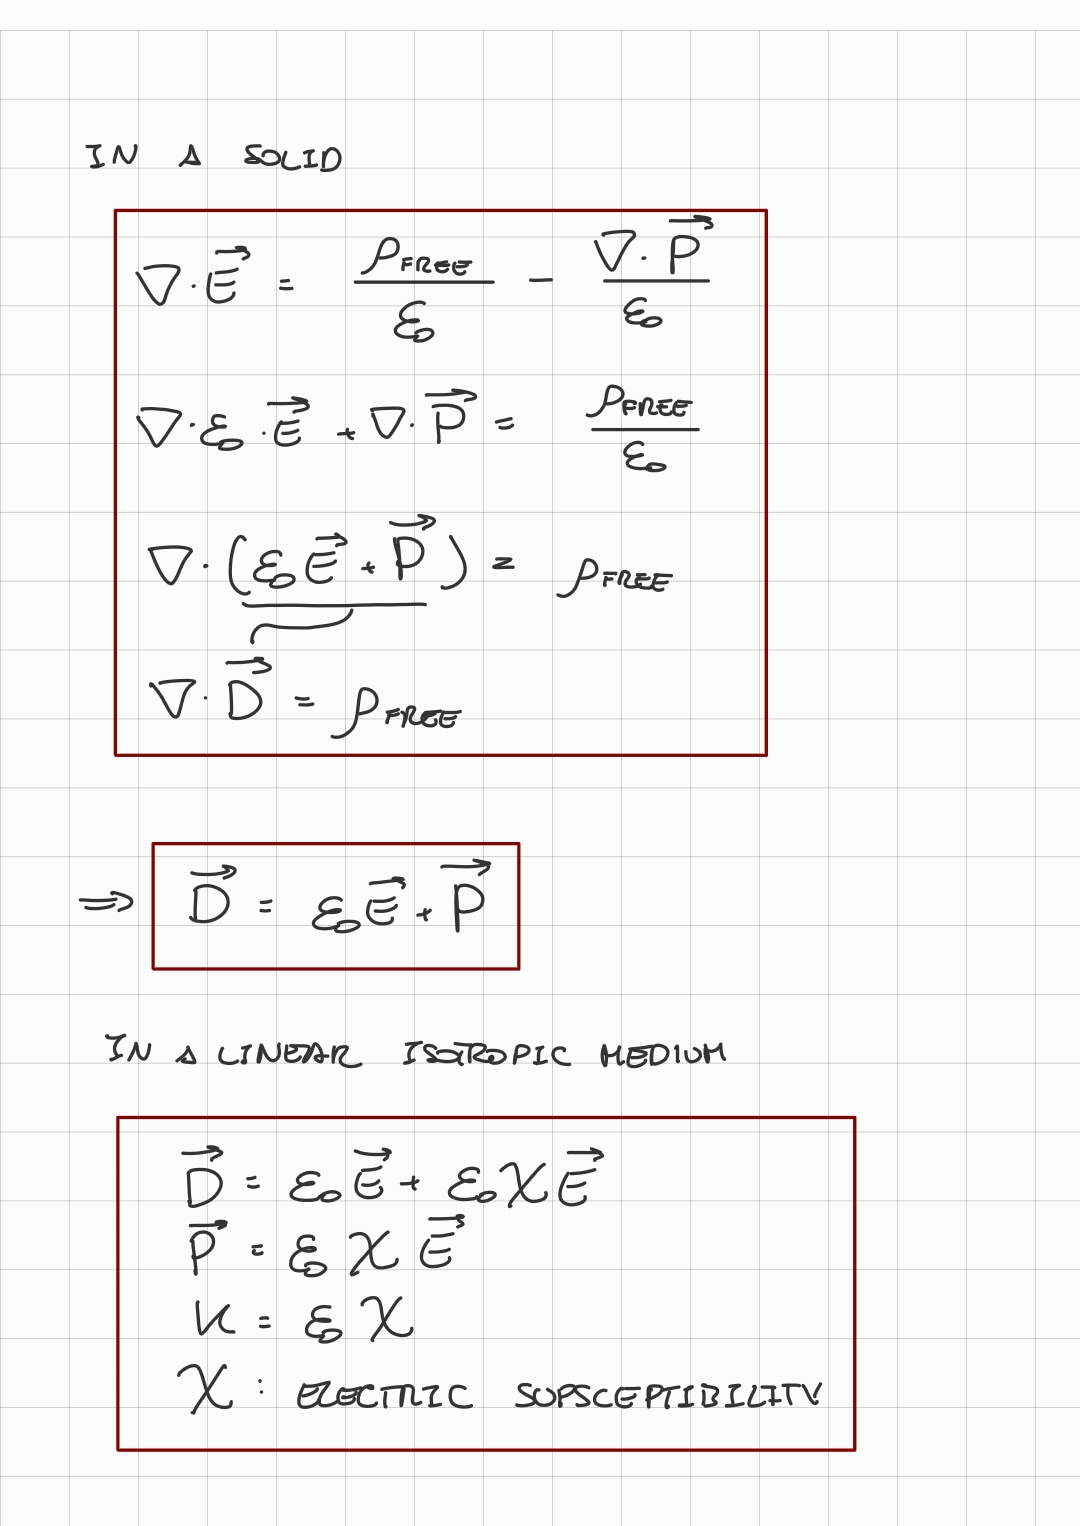 IN A SOLID
∇·E⃗ = ρ_FREE/ε₀ − ∇·P⃗/ε₀
∇·ε₀·E⃗ + ∇·P⃗ = ρ_FREE/ε₀
∇·(ε₀E⃗ + P⃗) = ρ_FREE
∇·D⃗ = ρ_FREE
⇒ D⃗ = ε₀E⃗ + P⃗
IN A LINEAR ISOTROPIC MEDIUM
D⃗ = ε₀E⃗ + ε₀χE⃗
P⃗ = ε₀χE⃗
K = ε₀χ
χ : ELECTRIC SUPSCEPTIBILITY